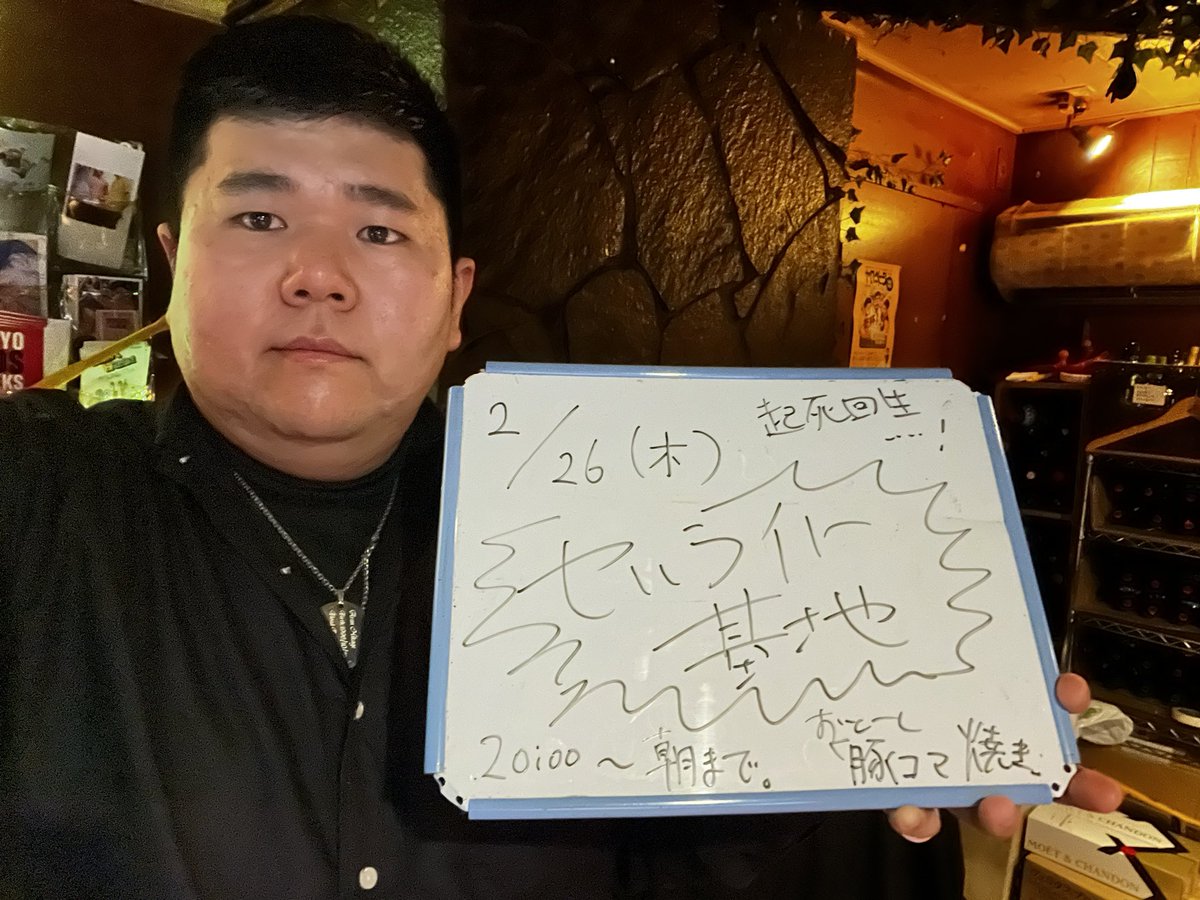 2/26(木)
起死回生
....!
セハライバー
基地
20:00～朝まで。
おとーし
豚コマ焼き
YO
OS
KS
MOËT & CHANDON
MOËT & CHANDON